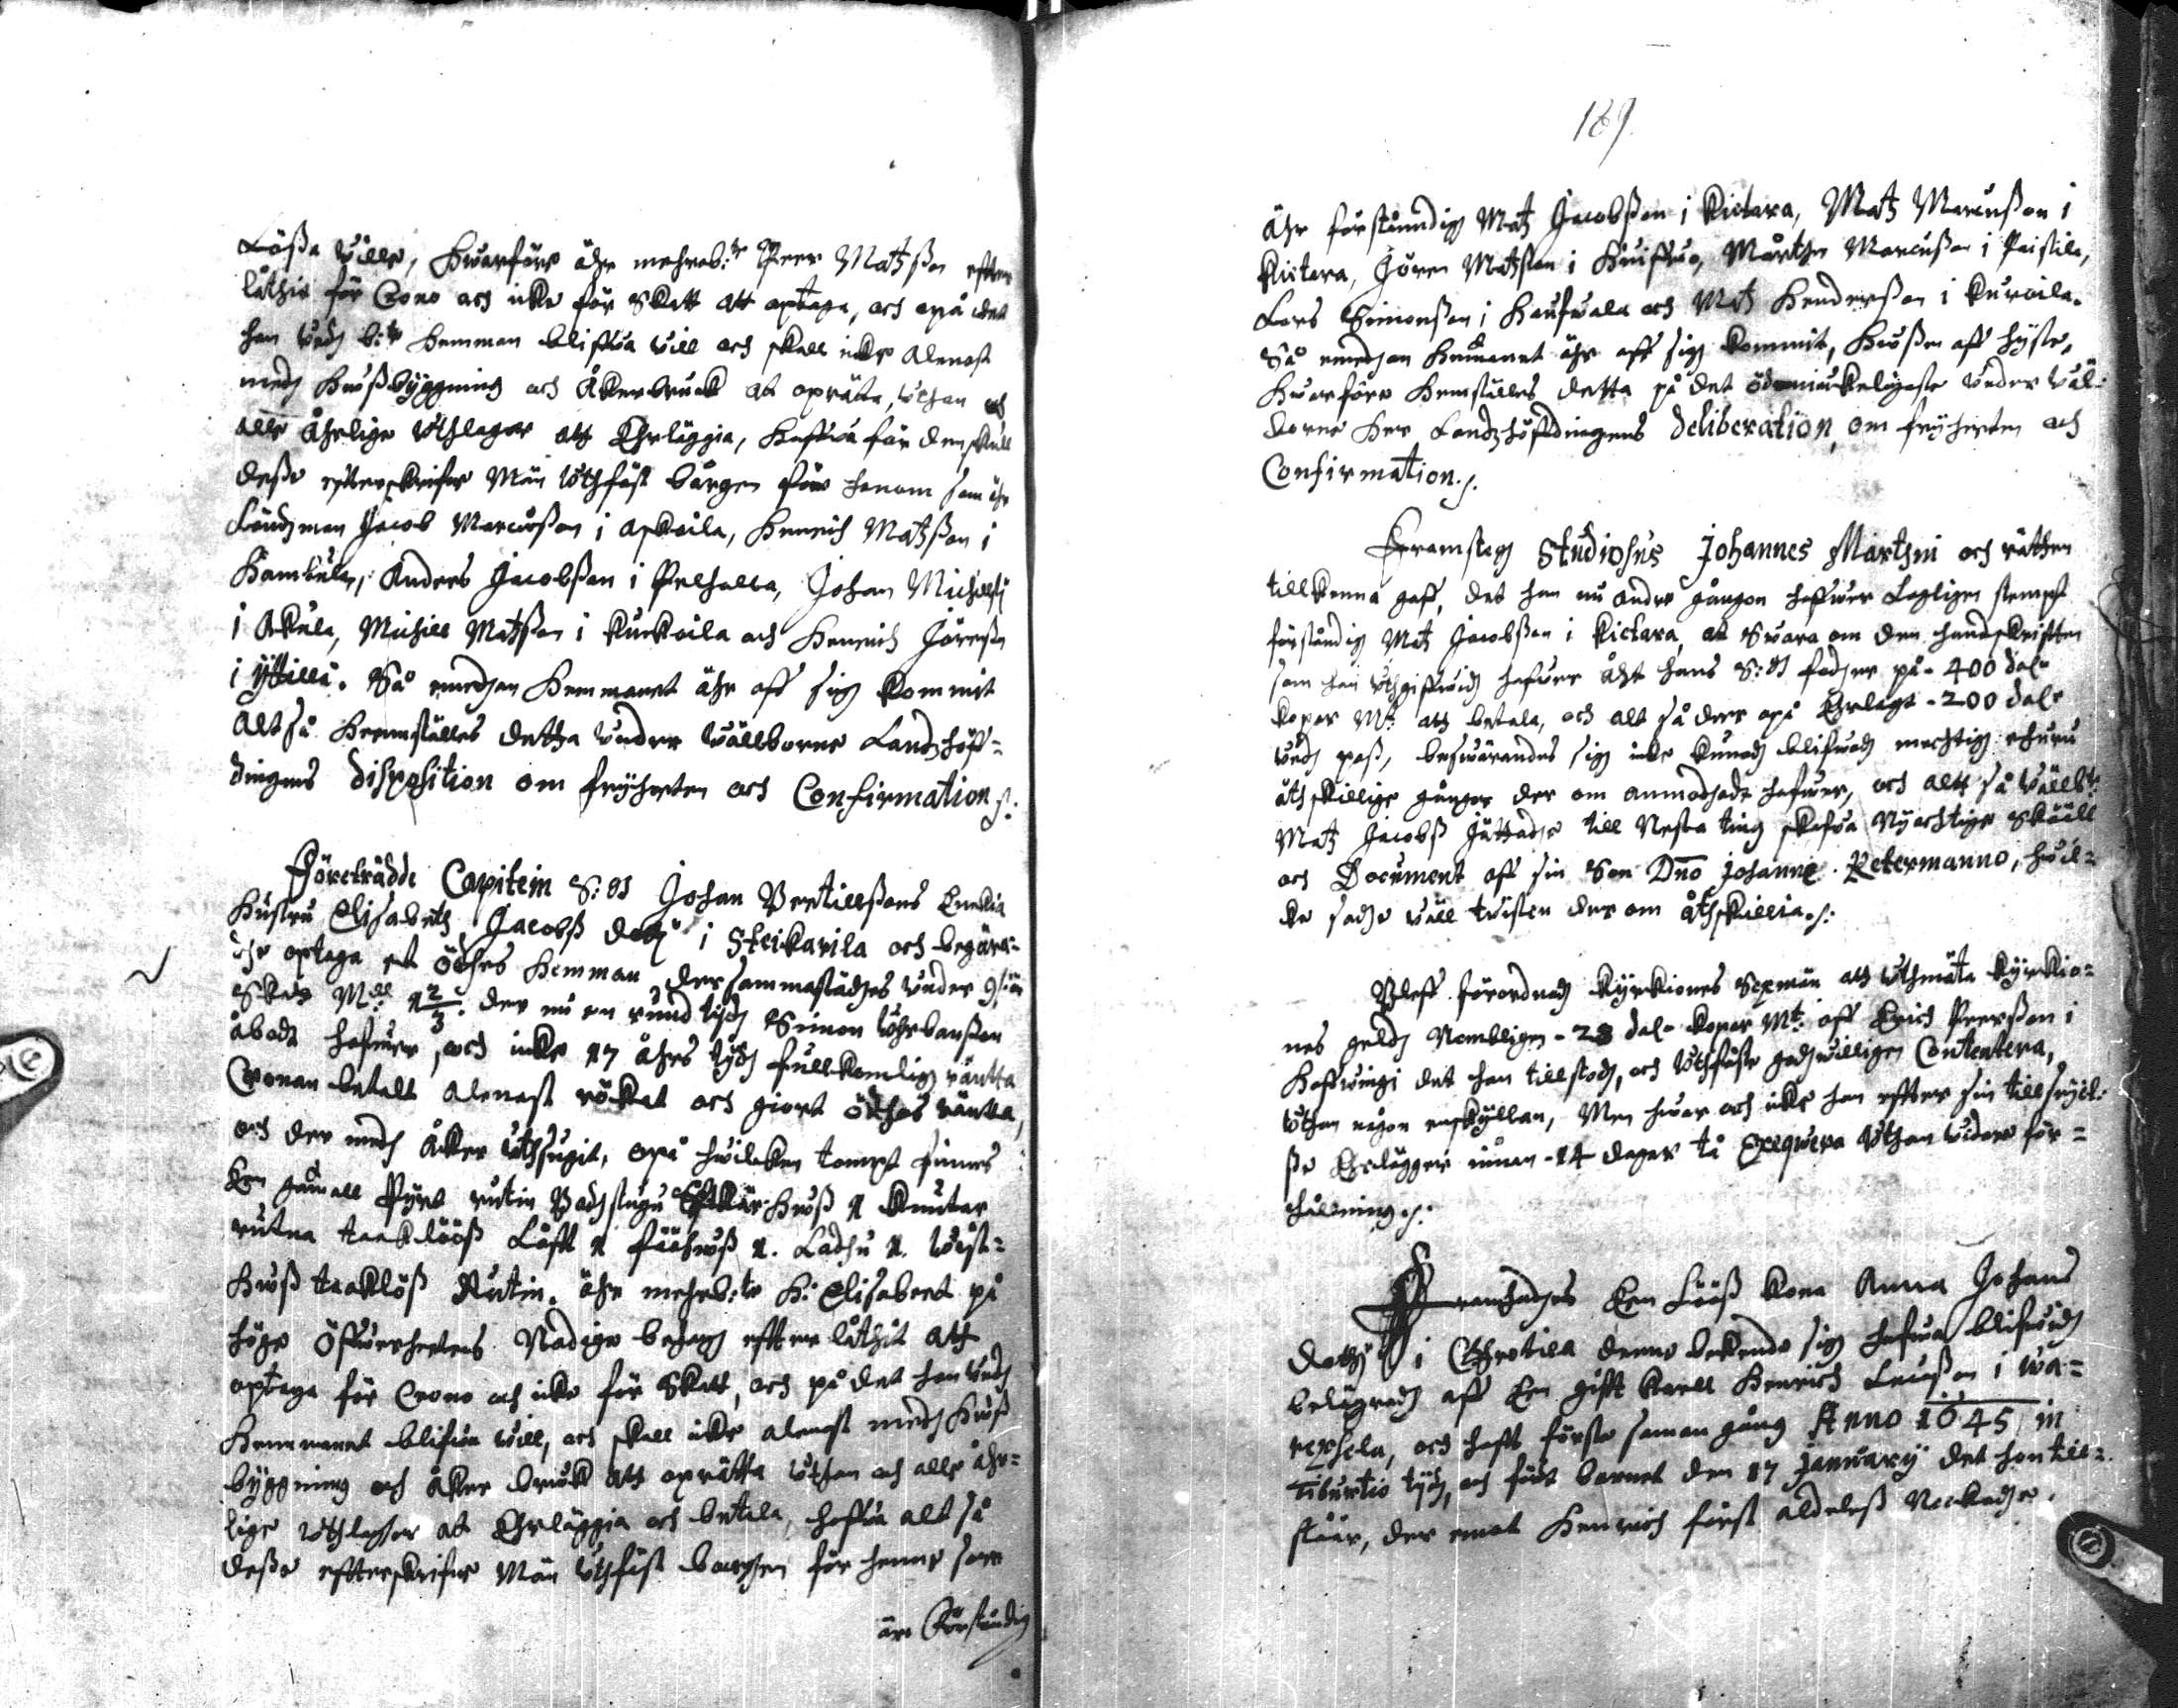 Lößa wille, Hwarföre ähr mehrb:te Peer Matzson effter
låthit för Crono och icke för Skatt att optaga, och opå det
han widh b:te Hemman blifwa will och skall icke alenast
medh Hwßbyggning och Åkerbruck at oprätta, uthan och
alle Åhrlige uthlagor att Ehrläggia, Haffwa för den skull
deße effterskrifne Män uthfäst borgen för honom som ähr
Ländzman Jacob Marcußon i Askoila, Henrich Matzßon i
Kambula, Anders Jacobßon i Pelhalla, Johan Michelsß
i Akula, Michill Matzßon i Kurkoila och Henrich Jörenß
i Yttille. Så emedhan Hemmanet ähr aff sig kommit
Altså Heemställes detta under wällborne Landzhöf=
dingens disposition om frijheeten och Confirmation ./.
Företrädde Capitein S: Johan Bertillßons Enckia
Hustru Elisabeth Jacobß dotter i Steikarila och begära=
de optaga et Ödhes Hemman der sammastädhes under
Skat M:ll 1 2/3. der nu en rund tijdh Simon Uhrbanßon
åbodt hafwer, och icke 17 åhrs tijdh fullkomlig räntta
Cronan betalt alenast röket och giort ödhes räntta,
och der medh åker uthsugit, opå hwilcken tompt finnes
Een gammall Pyrt rutin Badhstugu Kiäk Hwß 1 knutar
rutna taaklööß Lofft 1 fäähwß 1. Ladhu 1. wist=
Hwß taaklöß Rutin. ähr mehrb:te H: Elisabeet på
höge Öfwerheetens Nådige behag effter låthit att
optaga för Crono och icke för Skatt, och på det hon widh
Hemmanet blifwa will, och skall icke alenast medh Hwß
byggning och åker bruk att oprätta uthan och alle åhr=
lige uthlagor at Ehrläggia och betala, haffwa alt så
deße effterskrifne Män uthfäst borgen för henne som
äre Förståndig
189.
Ähr förståndig Matz Jacobßon i Kietara, Matz Marcußon i
Kietara, Jören Matzßon i, Mårthen Marcußon i Paistila,
Lars Simonßon i Haufwala och Matz Henderßon i Kuroila.
Så emedhan Hemmanet ähr aff sig kommit, Hwßen aff hyste,
Hwarföre Hemställes detta på det ödmiukeligaste under wäl=
borne Her Landzhöfdingens deliberation, om frijheeten och
Confirmation ./.
Framsteg Studiosus Johannes Marthni och rätten
tillkenna gaff, det han nu andre gången haffwer Lagligen stempt
förståndig Matz Jacobßon i Kietara, at Swara om den handskrifften
som han uthgiffwidh hafwer åht hans S: fadher på - 400 dal.
koppar M:t att betala, och alt så der opå Ehrlagt - 200 dal.
widh paß, beswärandes sig icke kunadh blifwadh mechtig ehuru
åthskillige gånger der om anmodhade hafwer, och allt så wällb:te
Matz Jacobß Jättadhe till Nesta ting skafva Nyachtige Skääll
och Document aff sin Son Dno Johanne Petermanno, hwil=
ke sadhe wäll twisten der om åthskillia ./.
Bleff förordnadh Kyrkiones Sexmän att uthmäta Kyrkio=
nes geldh Nembligen - 28 dal. koper M:t aff Erich Peerßon i
Haffwingi det han tillstodh, och uthfäste godhwilligen Contentera,
uthan någon enskyllan, Men hwar och icke han effter sin till
ße Ehrlägger innan - 14 dagar tå Exeqwera uthan widare för=
hållning ./.
Framhades Een Lööß kona Anna Johans
dotter i Ehrotila denne bekende sig hafwa blifwidh
belägradh aff Een gifft karll Henrich Lewßon i Wa=
rexhela, och hafft förste saman gång Anno 1645 in
Tiburtio tijdh, och födt barnet den 17 January det hon till=
stäär, der emot Henrich först aldeleß Neekadhe.